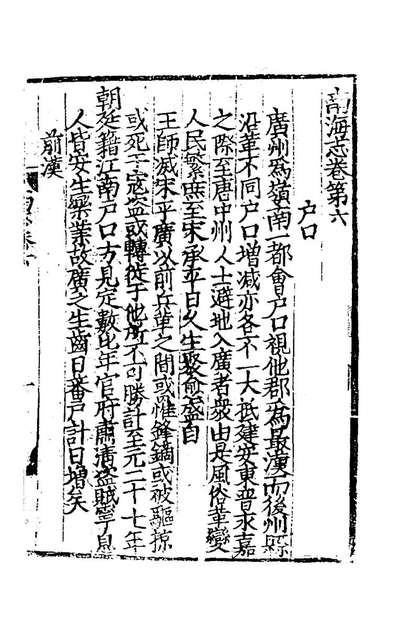 南海志卷第六
户口
廣州爲嶺南一都會户口視他郡爲最漢而後州縣
沿革不同户口增减亦各不一大抵建安東晋永嘉
之際至唐中州人士避地入廣者衆由是風俗革變
人民繁庶至宋承平日久生聚愈盛自
王師滅宋平廣以前兵革之間或罹鋒鏑或被驅掠
或死于寇盗或轉徙于他所不可勝計至元二十七年
朝廷籍江南户口方見定數比年官府肅清盗賊寧息
人皆安生樂業故廣之生齒日蕃户計日增矣
前漢